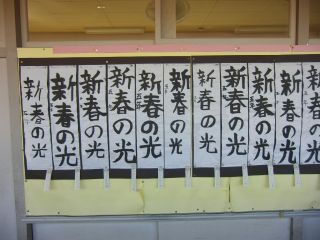 新春の光
新春の光
新春の光
新春の光
新春の光
新春の光
新春の光
新春の光
新春の光
新春の光
新春の光